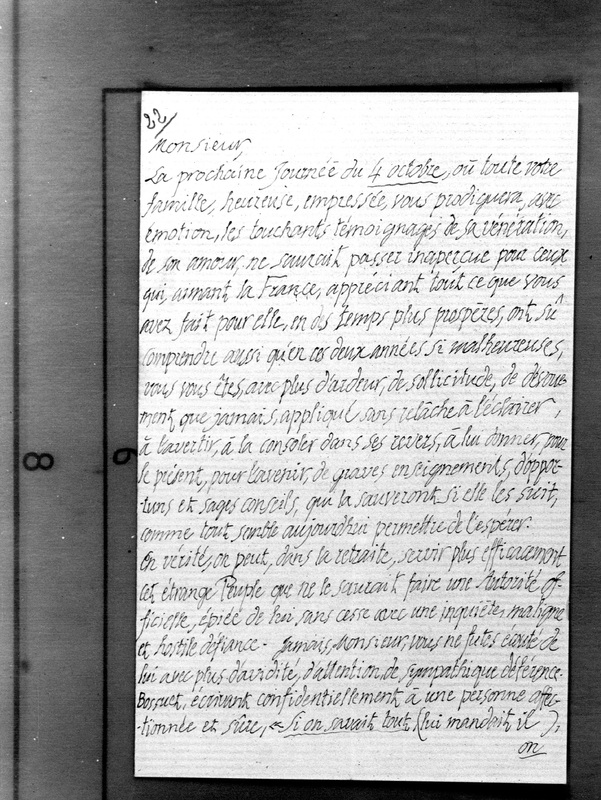 22/
Monsieur
La prochaine Journée du 4 octobre, où toute votre
famille, heureuse, empressée, vous prodiguera, avec
émotion, les touchants témoignages de sa vénération,
de son amour, ne saurait passer inaperçue pour ceux
qui, aimant la France, appréciant tout ce que vous
avez fait pour elle, en des temps plus prospères, ont sû
comprendre aussi qu'en ces deux années si malheureuses,
vous vous êtes, avec plus d'ardeur, de sollicitude, de dévoue-
ment, que jamais, appliqué sans relâche à l'éclairer,
à l'avertir, à la consoler dans ses revers, à lui donner, pour
le présent, pour l'avenir, de graves enseignements, d'oppor-
tuns et sages conseils, qui la sauveront si elle les suit,
comme tout semble aujourd'hui permettre de l'espérer.
En vérité, on peut, dans la retraite, servir plus efficacement
cet étrange Peuple que ne le saurait faire une Autorité of-
ficielle, épiée de lui sans cesse avec une inquiète, maligne
et hostile défiance. Jamais, Monsieur, vous ne fûtes écouté de
lui avec plus d'avidité, d'attention, de sympathique déférence.
Bossuet, écrivant confidentiellement à une personne affec-
-tionnée et sûre, « Si on savait tout (lui mandait il),
on
8
6